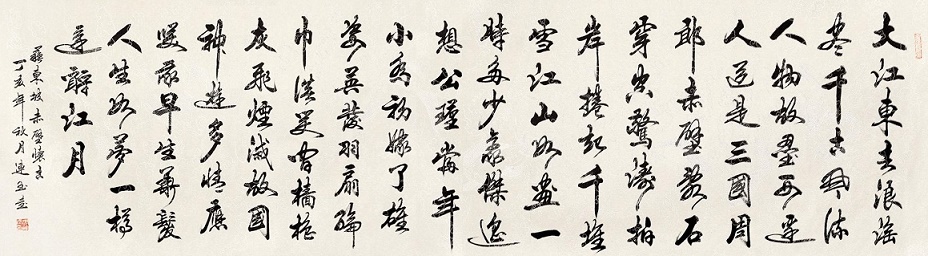 大江東去浪淘
尽千古風流
人物故壘西邊
人道是三國周
郎赤壁亂石
穿空驚濤拍
岸捲起千堆
雪江山如畫一
時多少豪傑遙
想公瑾當年
小喬初嫁了雄
姿英發羽扇綸
巾談笑間檣櫓
灰飛煙滅故國
神遊多情應
笑我早生華髮
人生如夢一樽
還酹江月
蘇東坡赤壁懷古
丁亥年秋月